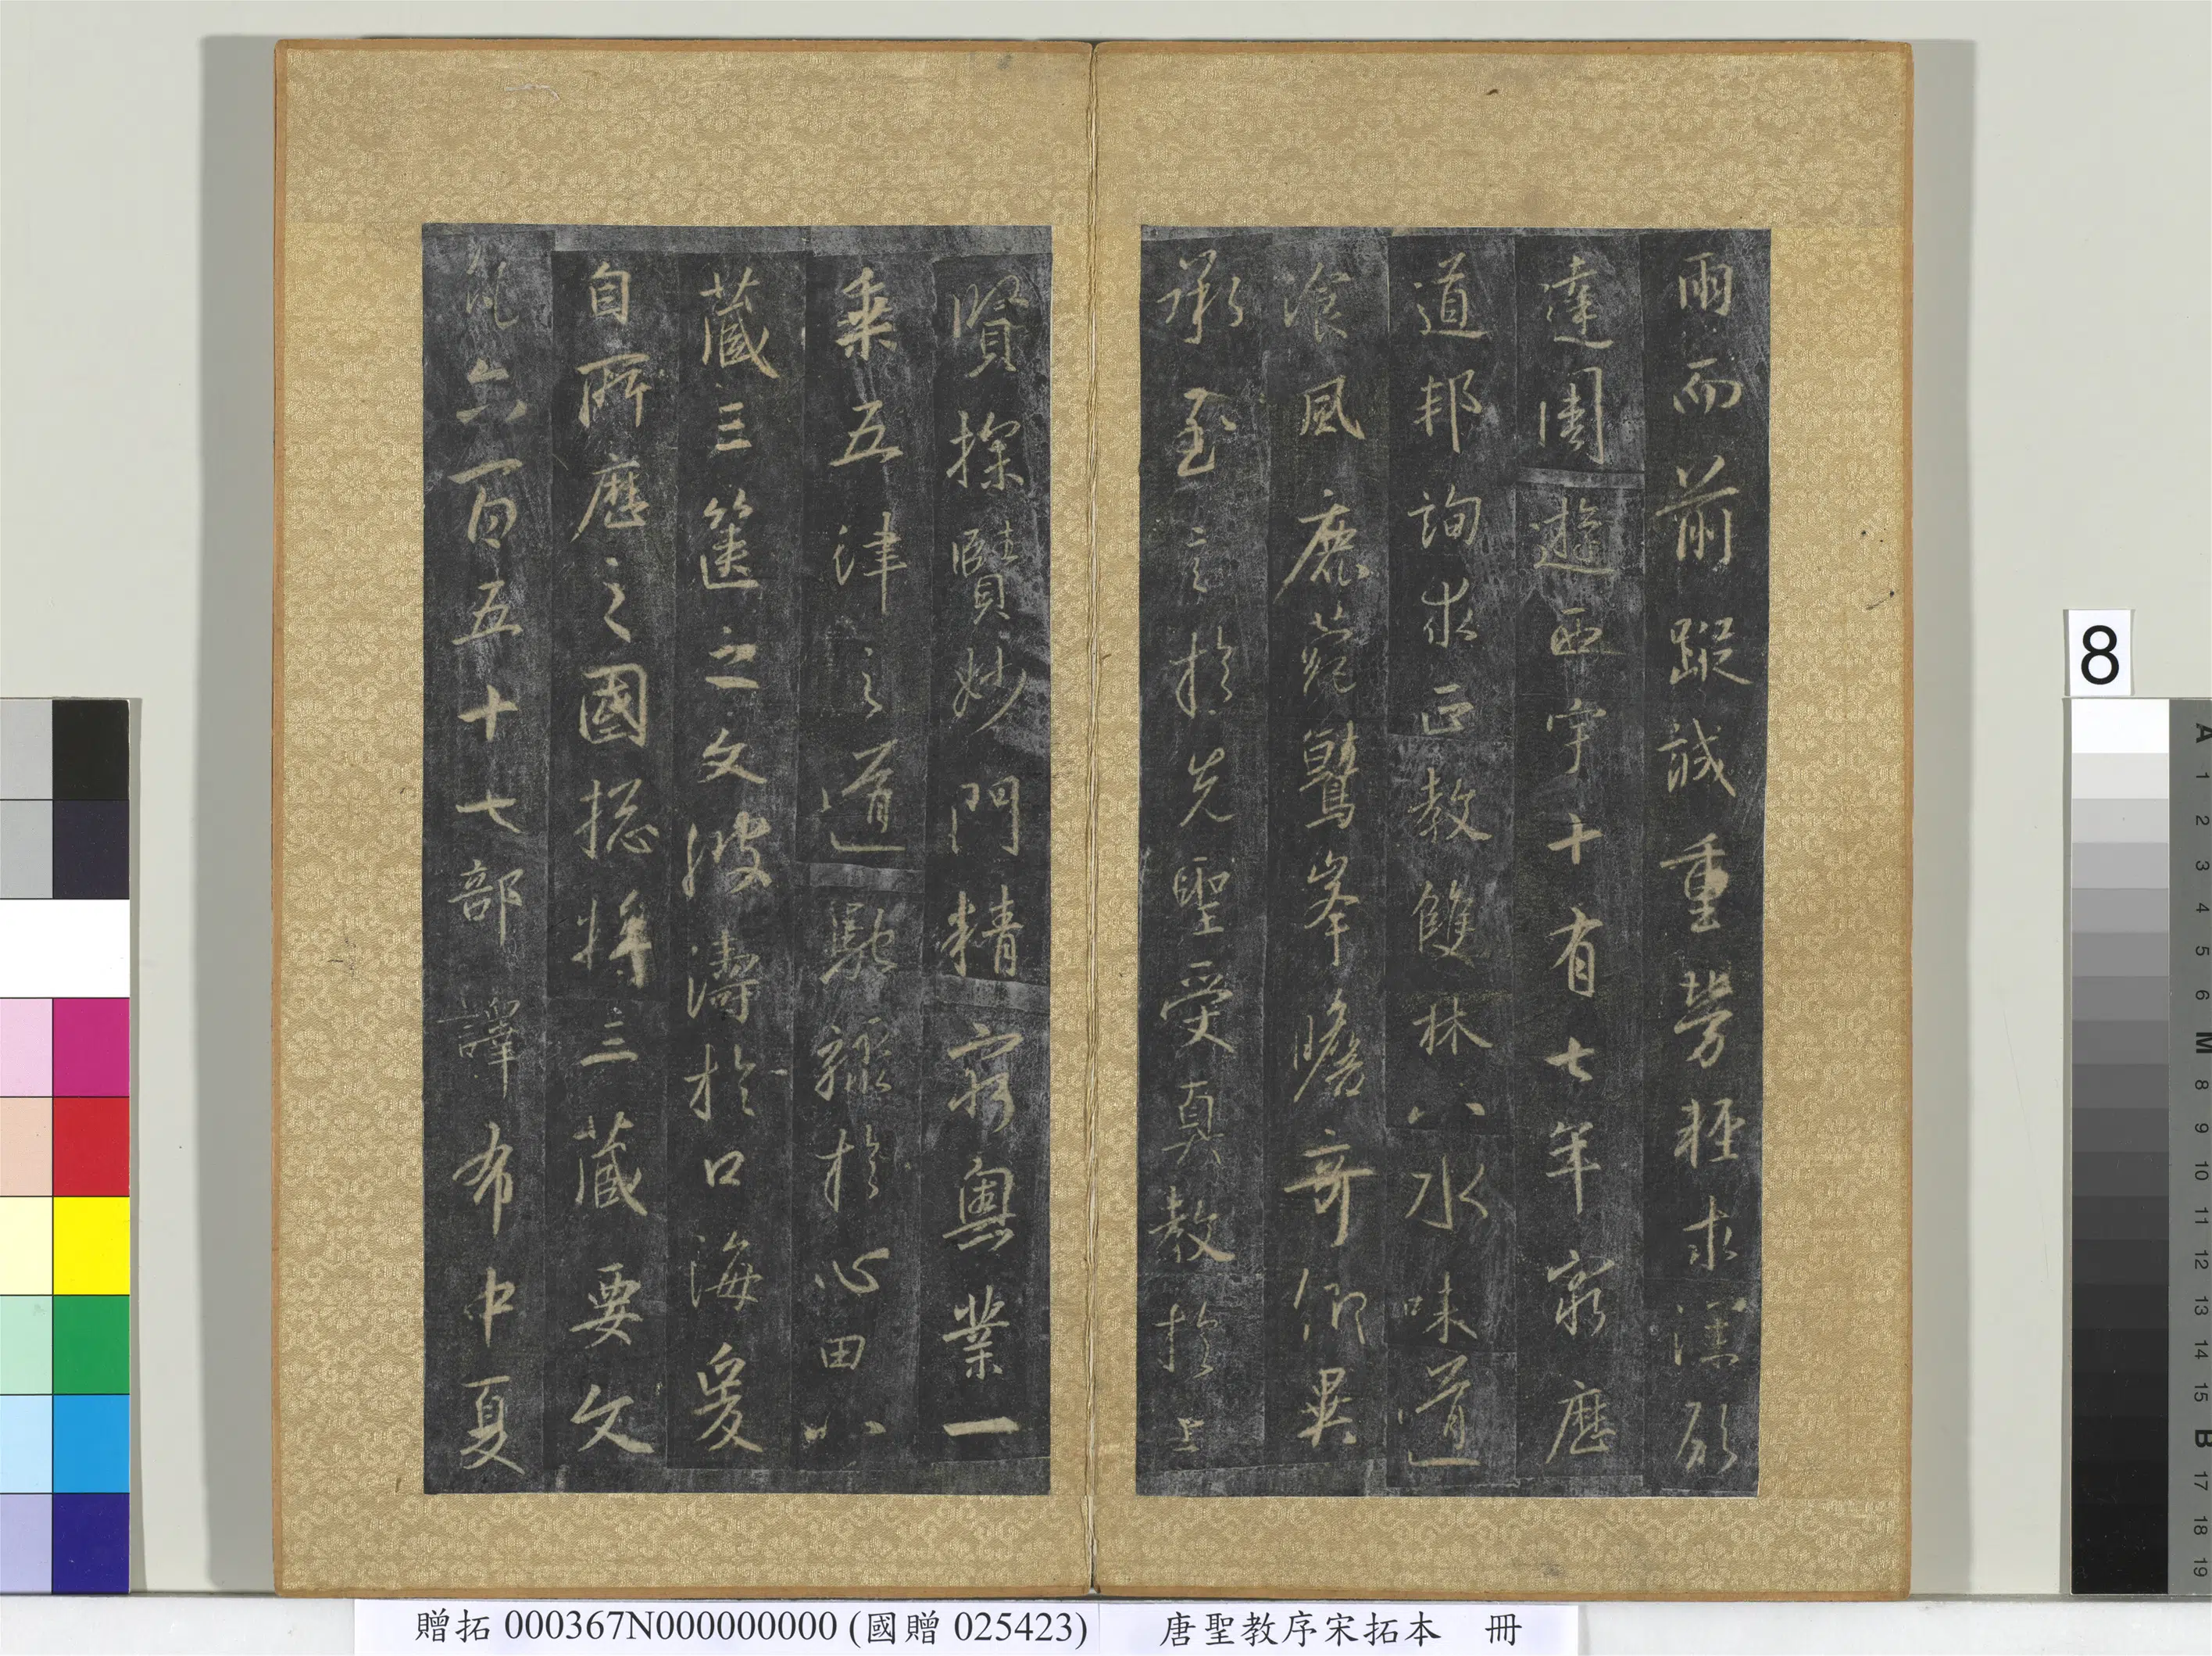 雨而前蹤誠重勞輕求深願
達周遊西宇十有七年窮歷
道邦詢求正教雙林八水味道
飡風鹿菀鷲峯瞻奇仰異
承至言於先聖受真教於上
賢探賾妙門精窮奧業一
乘五津之道馳驟於心田八
藏三篋之文波濤於口海爰
自所歷之國揔將三藏要文
凡六百五十七部譯布中夏
8
A 1 2 3 4 5 6 M 8 9 10 11 12 13 14 15 B 17 18 19
贈拓 000367N000000000 (國贈 025423) 唐聖教序宋拓本 冊